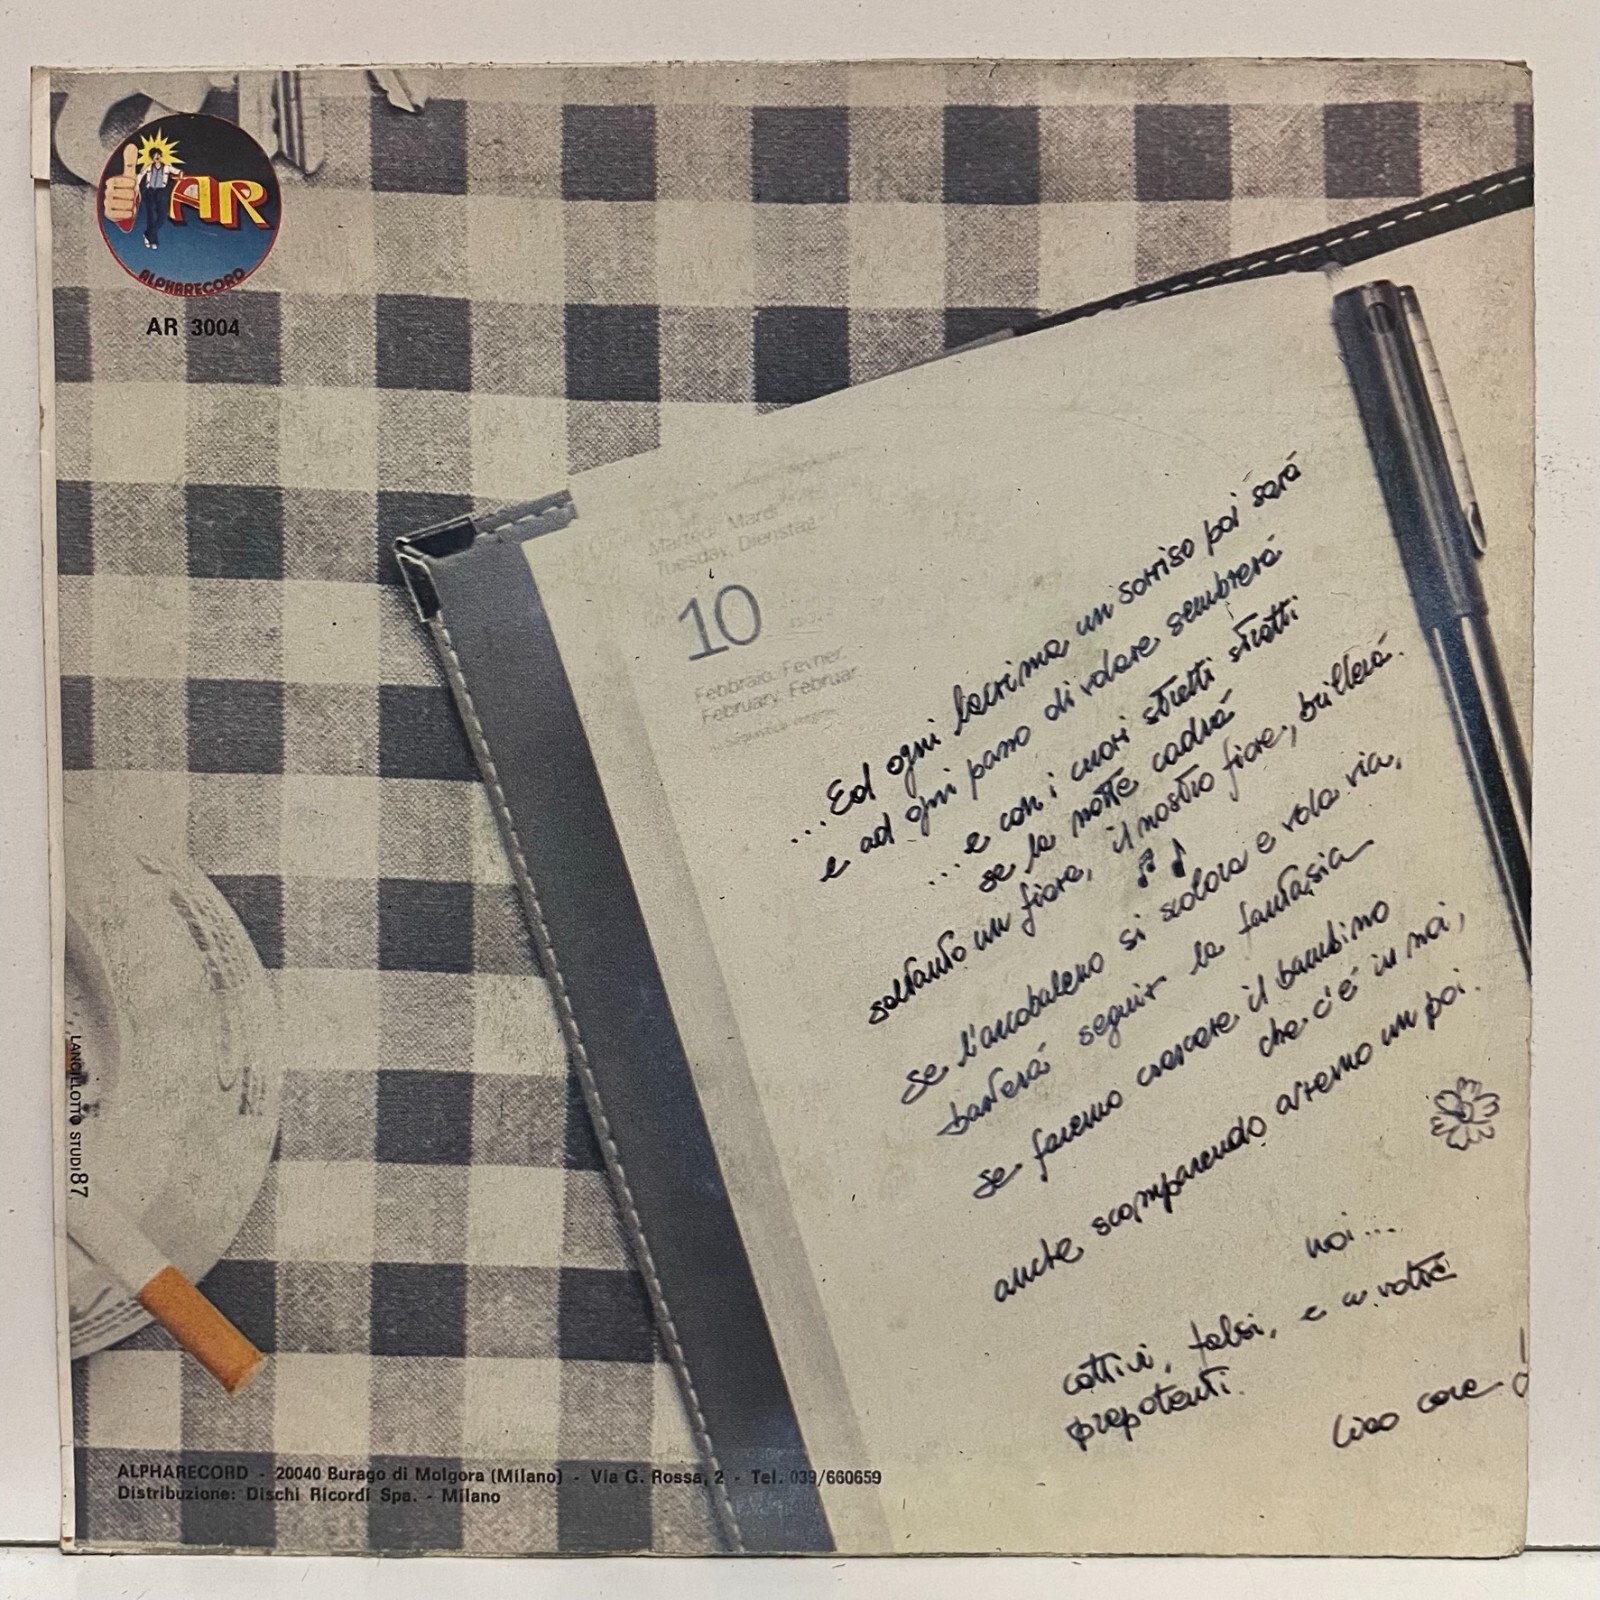 AR
ALPHARECORD
AR 3004
Martedì. Mardi
Tuesday. Dienstag
10
Febbraio. Fevrier.
February. Februar.
...Ed ogni lacrima un sorriso poi sará
e ad ogni passo di volare sembrerá
...e con i cuori stretti stretti
se la notte cadrá
soltanto un fiore, il nostro fiore, brillerá.
se l'arcobaleno si scolora e vola via,
basterá seguir la fantasia
se faremo crescere il bambino
che c'é in noi,
anche scomparendo avremo un poi.
noi...
cattivi, falsi, e a volte
prepotenti.
Ciao care
LANCILLOTTO STUDI87
ALPHARECORD - 20040 Burago di Molgora (Milano) - Via G. Rossa, 2 - Tel. 039/660659
Distribuzione: Dischi Ricordi Spa. - Milano